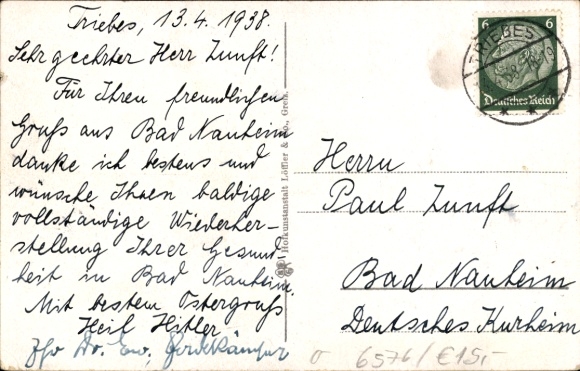 Triebes, 13.4.1938.
Sehr geehrter Herr Zunft!
Für Ihren freundlichen
Gruß aus Bad Nauheim
danke ich bestens und
wünsche Ihnen baldige
vollständige Wiederher-
stellung Ihrer Gesund-
heit in Bad Nauheim.
Mit bestem Ostergruß
Heil Hitler
Dr.
Hofkunstanstalt Löffler & Co., Greiz.
6
6
Deutsches Reich
TRIEBES
Herrn
Paul Zunft
Bad Nauheim
Deutsches Kurheim
6576/€15,-